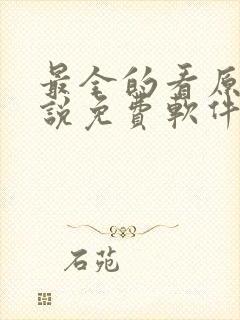 最全的看原
說免費軟件
石苑